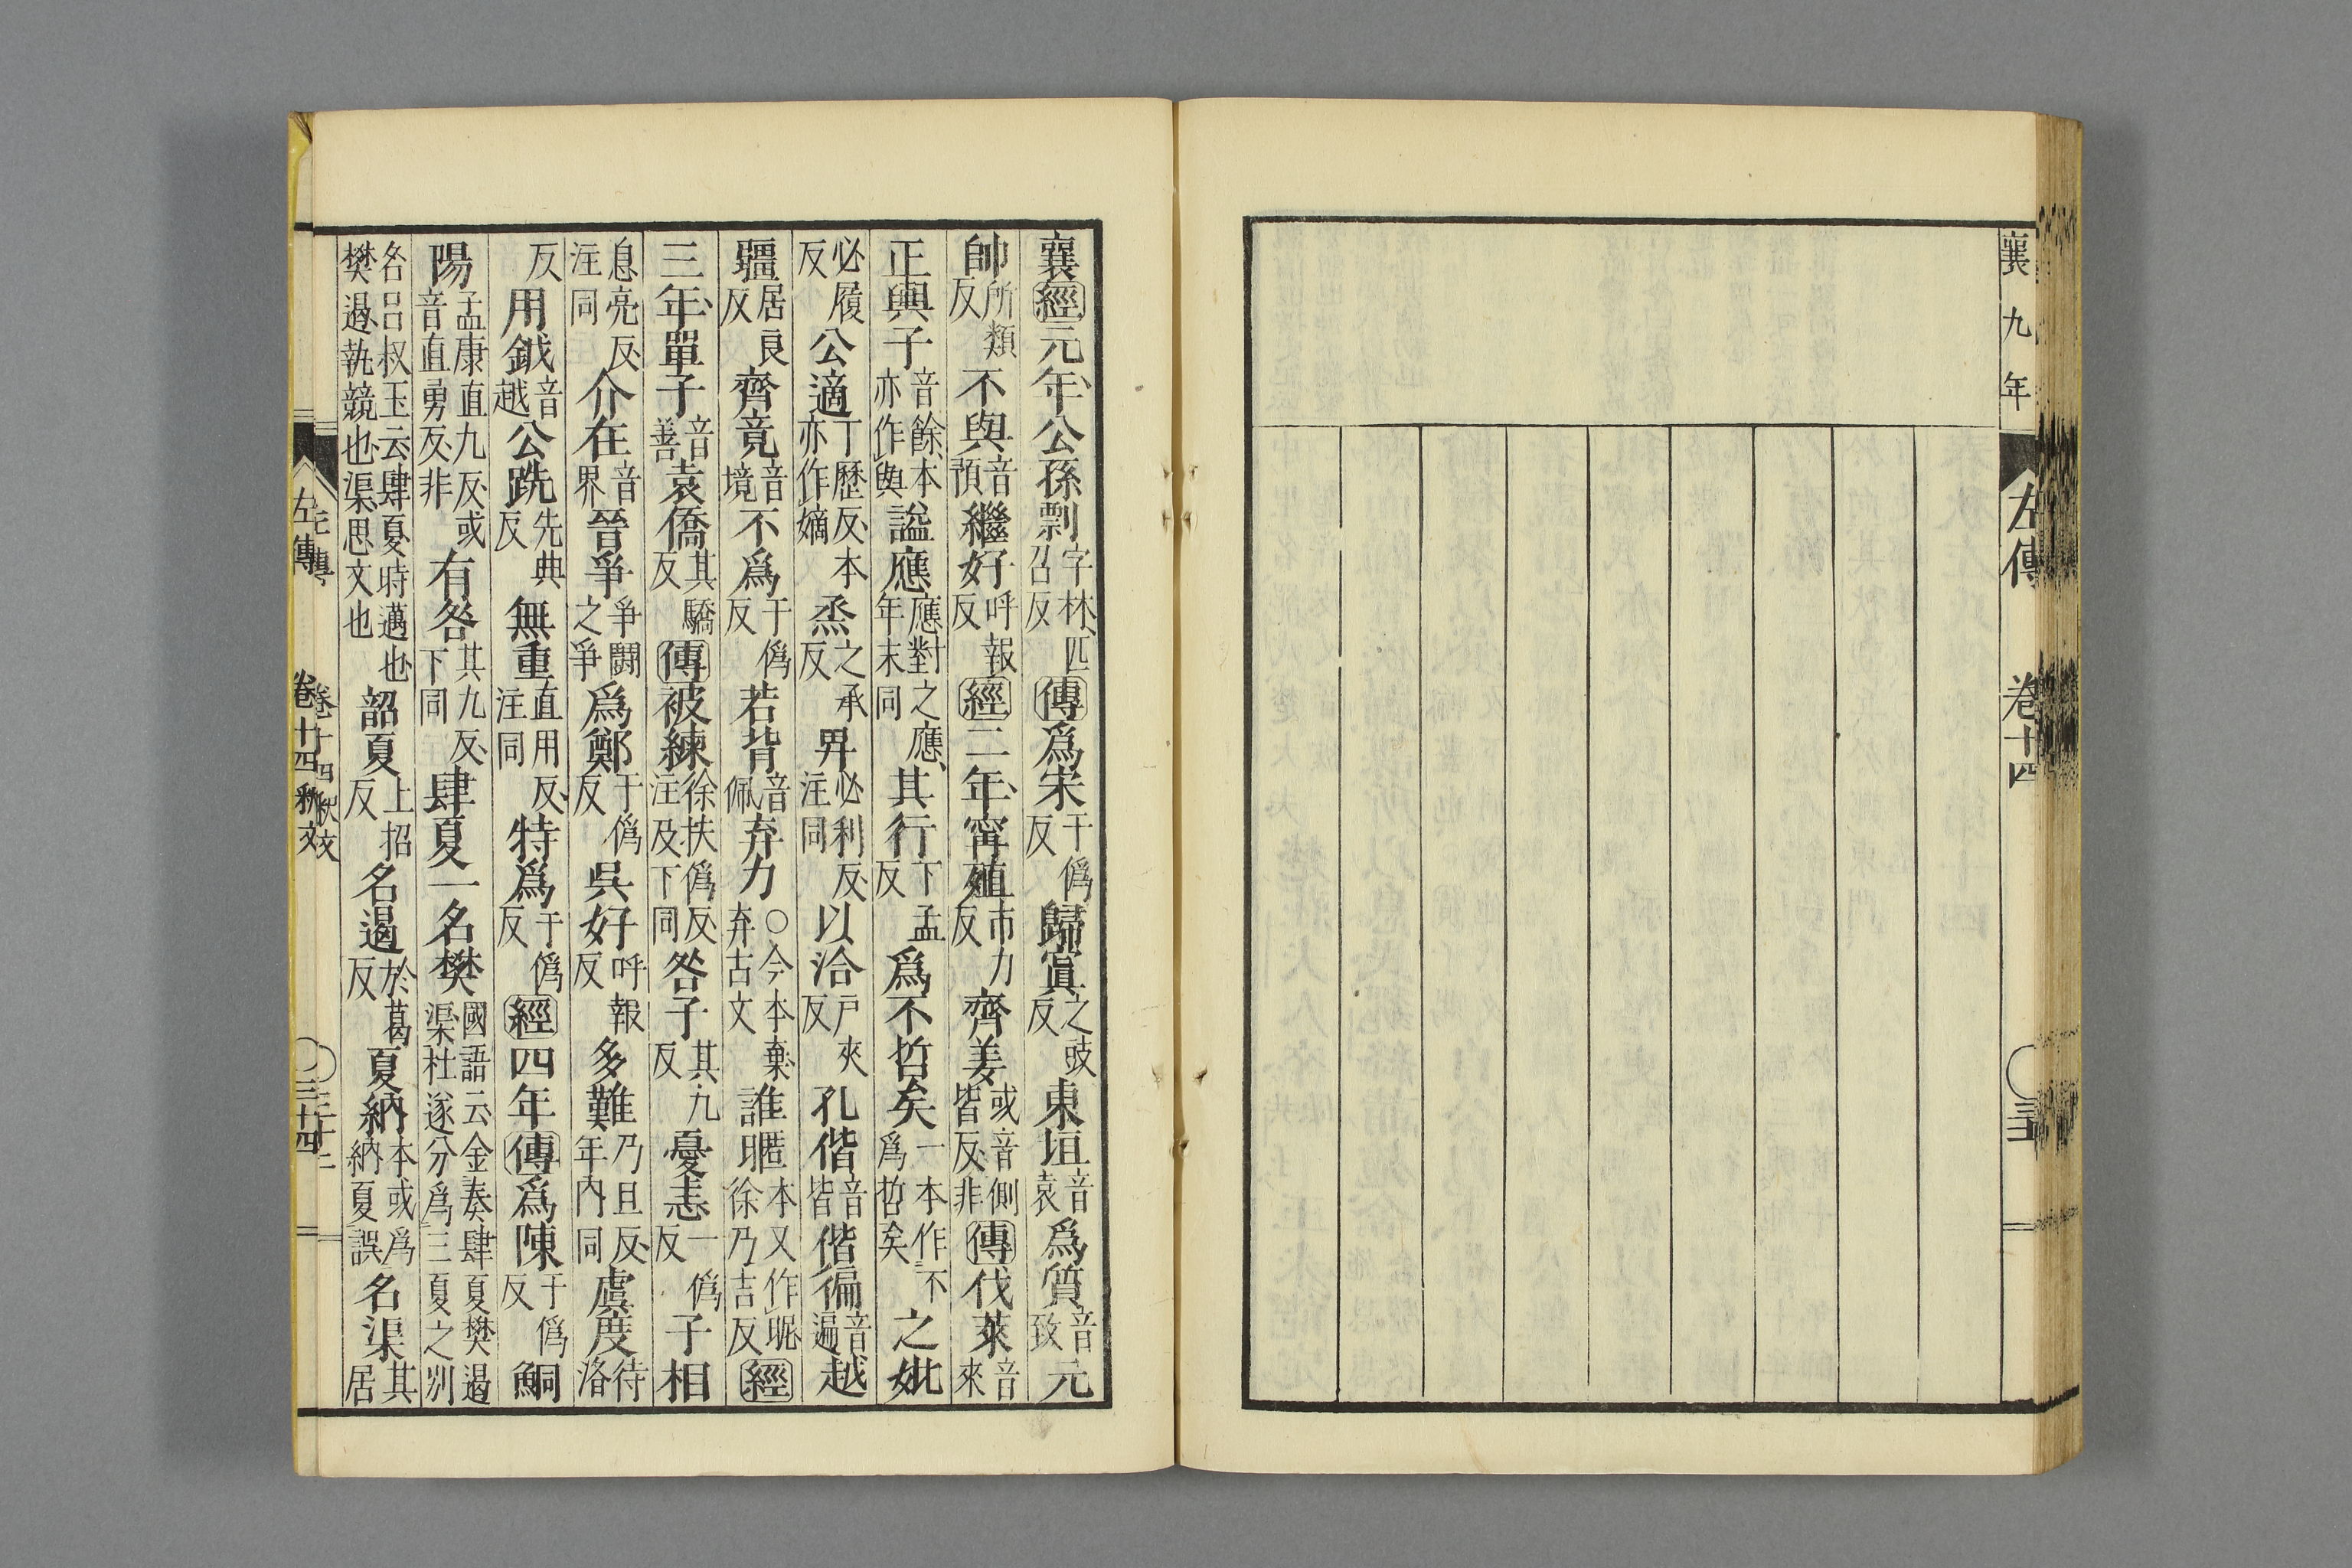 襄九年
左傳 卷十四 三五
襄經元年公孫剽字林匹召反傳爲宋于僞反歸寘之豉反東垣音袁爲質音致元
帥所類反不與音預繼好呼報反經二年甯殖市力反齊姜或音側皆反非傳伐萊音來
正輿子音餘本亦作與謚應應對之應年末同其行下孟反爲不哲矣一本作不爲哲矣之妣
必履反公適丁歷反本亦作嫡烝之承反畀必利反注同以洽戶夾反孔偕音皆偕徧音遍越
疆居良反齊竟音境不爲于僞反若背音佩弃力○今本棄弃古文誰暱本又作昵徐乃吉反經
三年單子音善袁僑其驕反傳被練徐扶僞反注及下同咎子其九反憂恚一僞反子相
息亮反注同介在音界晉爭爭鬪之爭爲鄭于僞反吳好呼報反多難乃旦反年內同虞度待洛
反用鉞音越公跣先典反無重直用反注同特爲于僞反經四年傳爲陳于僞反鮦
陽孟康直九反或音直勇反非有咎其九反下同肆夏一名樊國語云金奏肆夏樊遏渠杜遂分爲三夏之別
名呂叔玉云肆夏時邁也樊遏執競也渠思文也韶夏上招反名遏於葛反夏納本或爲納夏誤名渠其居
左傳 卷十四釋文 三十四